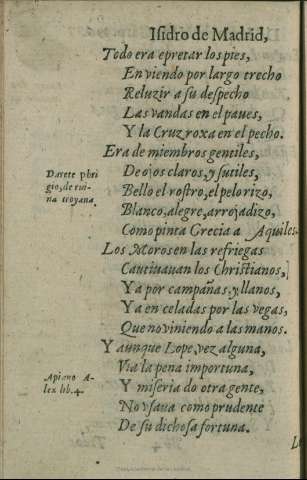 Isidro de Madrid,
Todo era epretar los pies,
En viendo por largo trecho
Reluzir a su despecho
Las vandas en el paues,
Y la Cruz roxa en el pecho.
Era de miembros gentiles,
Darete phri
gio, de rui
na troyana.
De ojos claros, y sutiles,
Bello el rostro, el pelo rizo,
Blanco, alegre, arrojadizo,
Como pinta Grecia a Aquiles.
Los Moros en las refriegas
Cautiuauan los Christianos,
Ya por campañas, y llanos,
Ya en celadas por las vegas,
Que no viniendo a las manos.
Y aunque Lope, vez alguna,
Via la pena importuna,
Apiano A-
lex lib. 4.
Y miseria do otra gente,
No vsaua como prudente
De su dichosa fortuna.